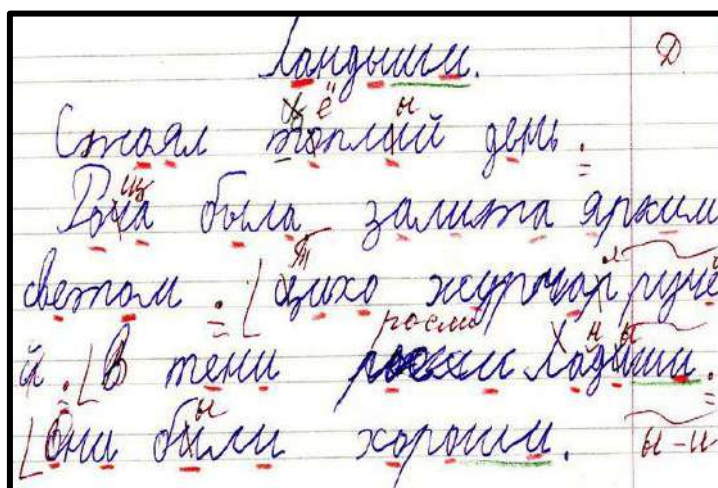 Ландыши. Д
Стоял тёплый день.
Роща была залита ярким
светом. Тихо журчал ручé
й. В тени росли Ландыши.
Они были хороши. ы-и